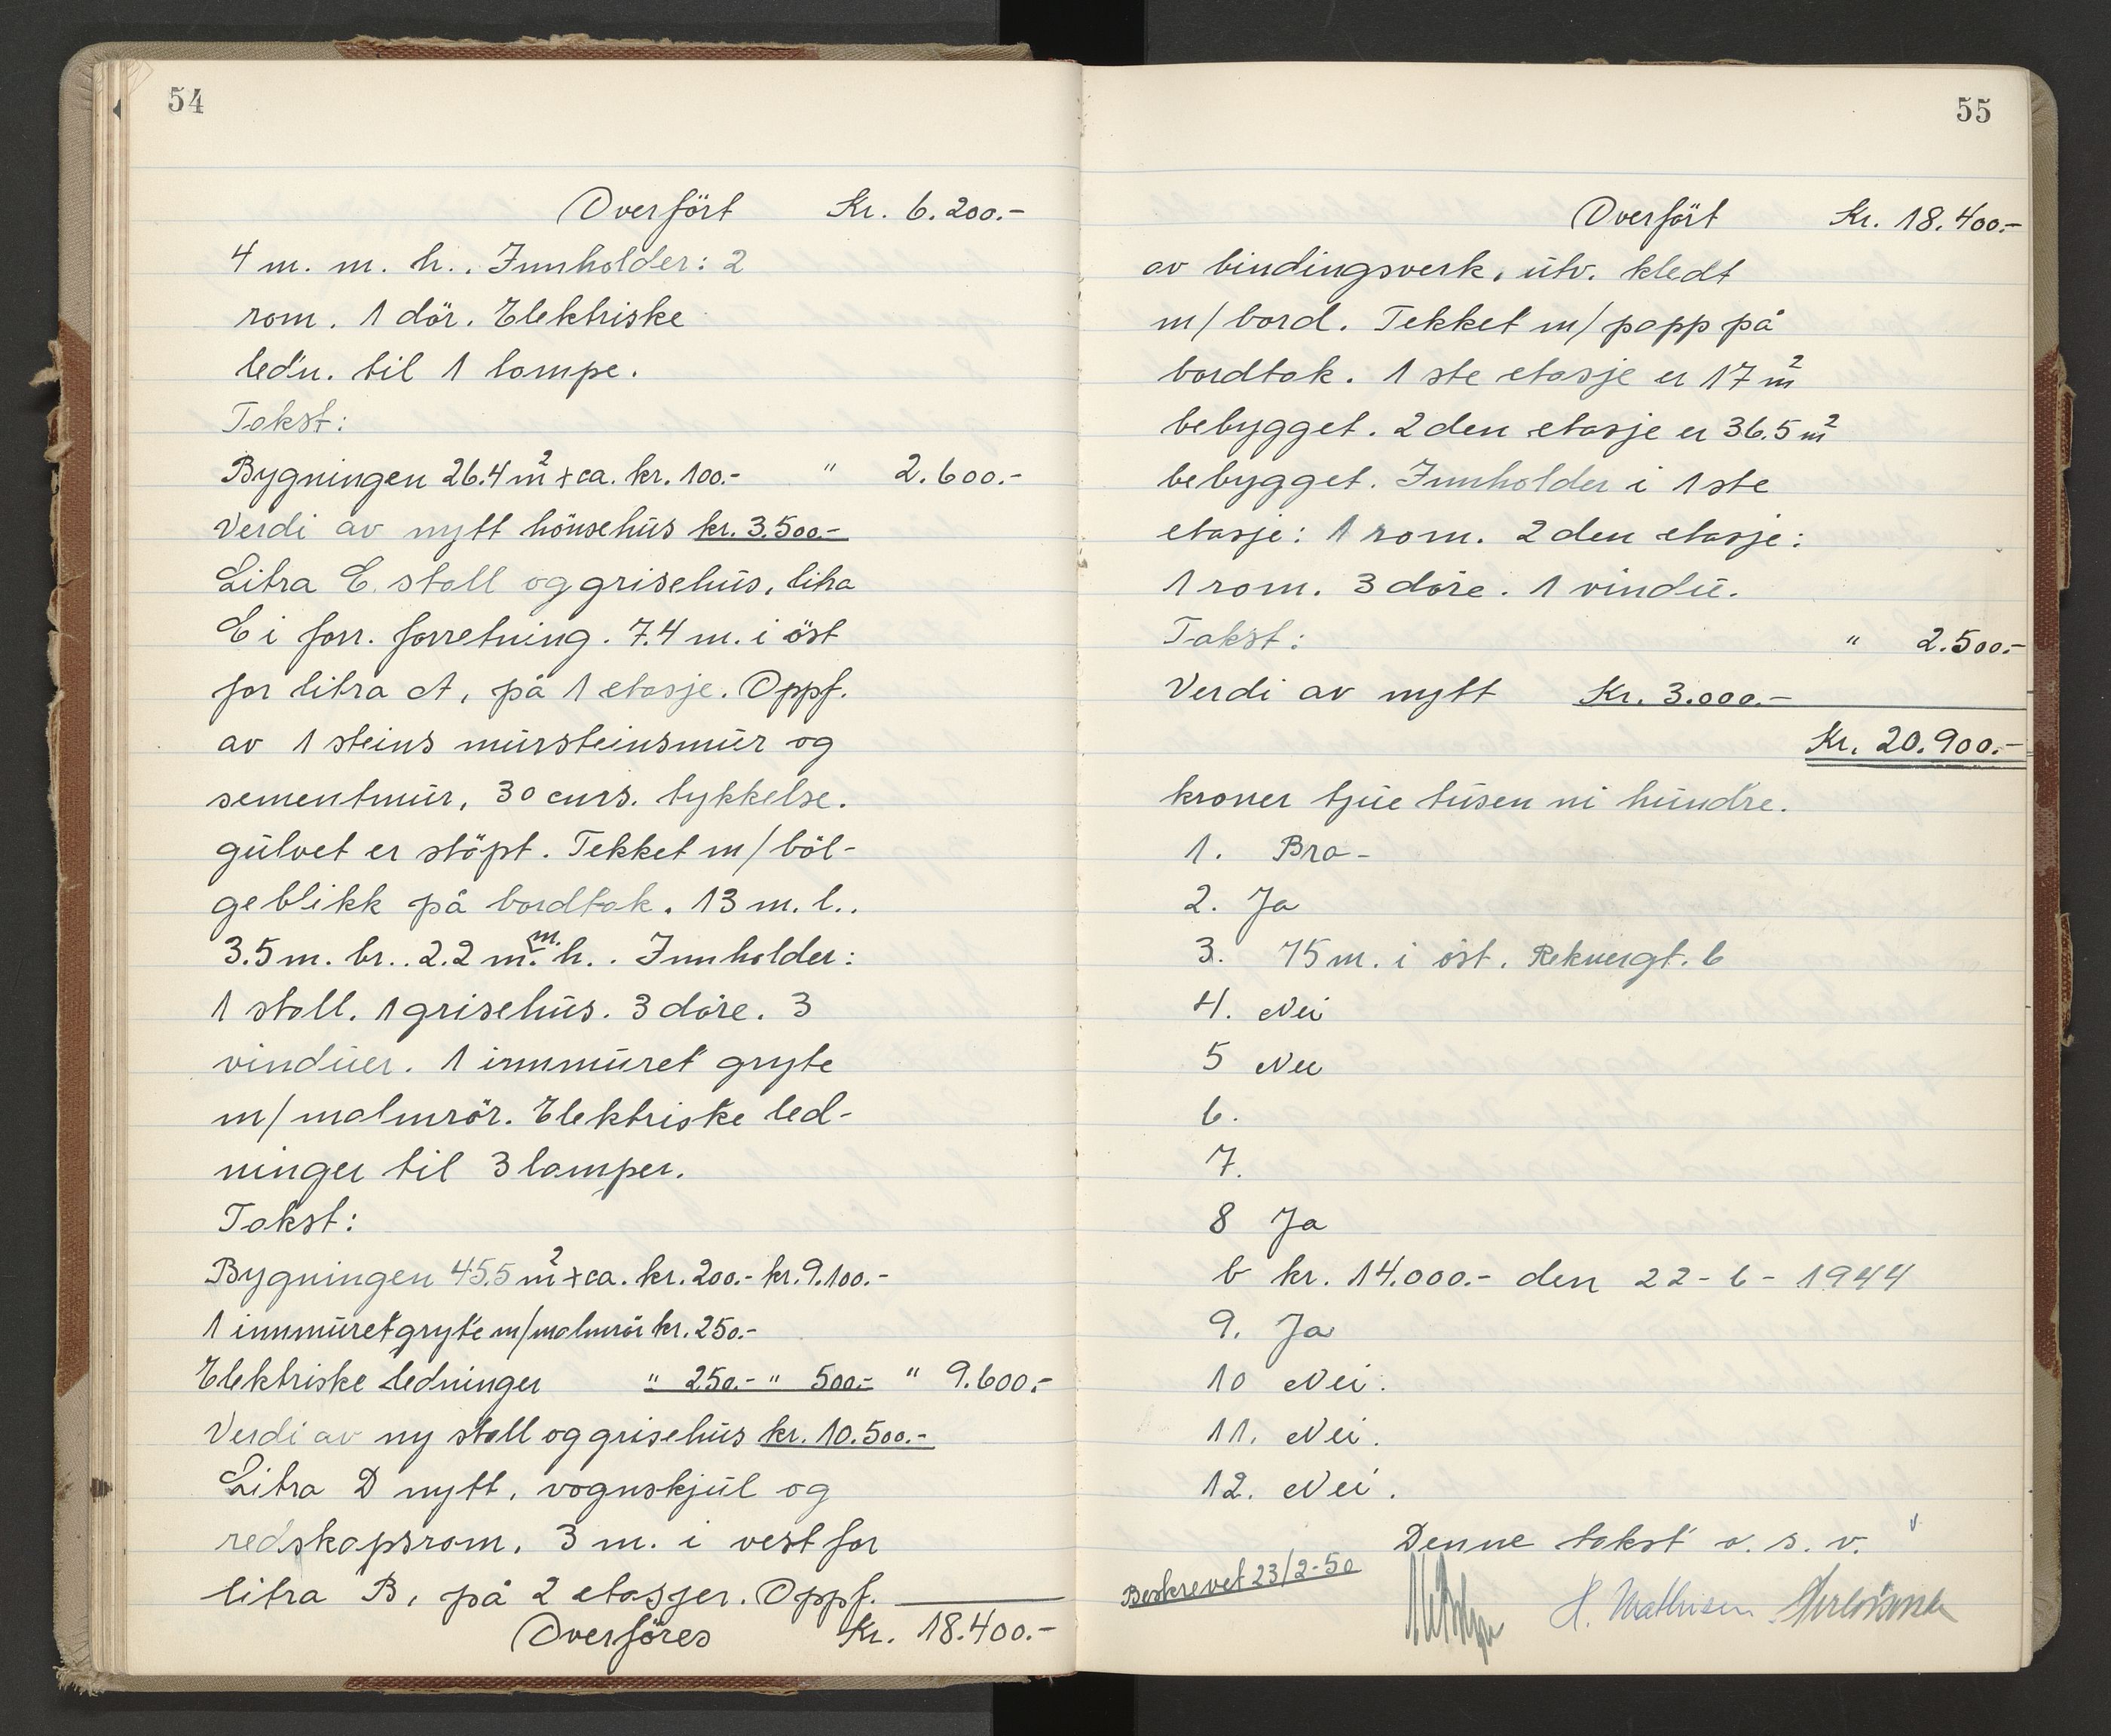 54
Overfört Kr. 6.200.-
4 m. m. h.. Innholder: 2
rom. 1 dör. Elektriske
ledn. til 1 lampe.
Takst:
Bygningen 26.4 m² x ca. kr. 100.- " 2.600.-
Verdi av nytt hönsehus kr. 3.500.-
Litra C. stall og grisehus, litra
E i forr. forretning. 7.4 m. i öst
for litra A, på 1 etasje. Oppf.
av 1 steins mursteinsmur og
sementmur, 30 cms. tykkelse.
gulvet er stöpt. Tekket m/ böl-
geblikk på bordtak. 13 m. l..
3.5 m. br.. 2.2 m. m. h.. Innholder:
1 stall. 1 grisehus. 3 döre. 3
vinduer. 1 innmuret gryte
m/ malmrör. Elektriske led-
ninger til 3 lamper.
Takst:
Bygningen 45.5 m² x ca. kr. 200.- kr. 9.100.-
1 innmuret gryte m/malmrör kr. 250.-
Elektriske ledninger " 250.- " 500.- " 9.600.-
Verdi av ny stall og grisehus kr. 10.500.-
Litra D nytt, vognskjul og
redskapsrom, 3 m. i vest for
litra B, på 2 etasjer. Oppf.
Overföres Kr. 18.400.-
55
Overfört Kr. 18.400.-
av bindingsverk, utv. kledt
m/ bord. Tekket m/ papp på
bordtak. 1 ste etasje er 17 m²
bebygget. 2 den etasje er 36.5 m²
bebygget. Innholder i 1 ste
etasje: 1 rom. 2 den etasje:
1 rom. 3 döre. 1 vindu.
Takst: " 2.500.-
Verdi av nytt Kr. 3.000.-
Kr. 20.900.-
kroner tjue tusen ni hundre.
1. Bra-
2. Ja
3. 75 m. i öst. Rekvergt. 6
4. Nei
5 Nei
6.
7.
8 Ja
b kr. 14.000.- den 22-6-1944
9. Ja
10 Nei.
11. Nei.
12. Nei.
Denne takst o. s. v.
Beskrevet 23/2-50
H. Mathisen